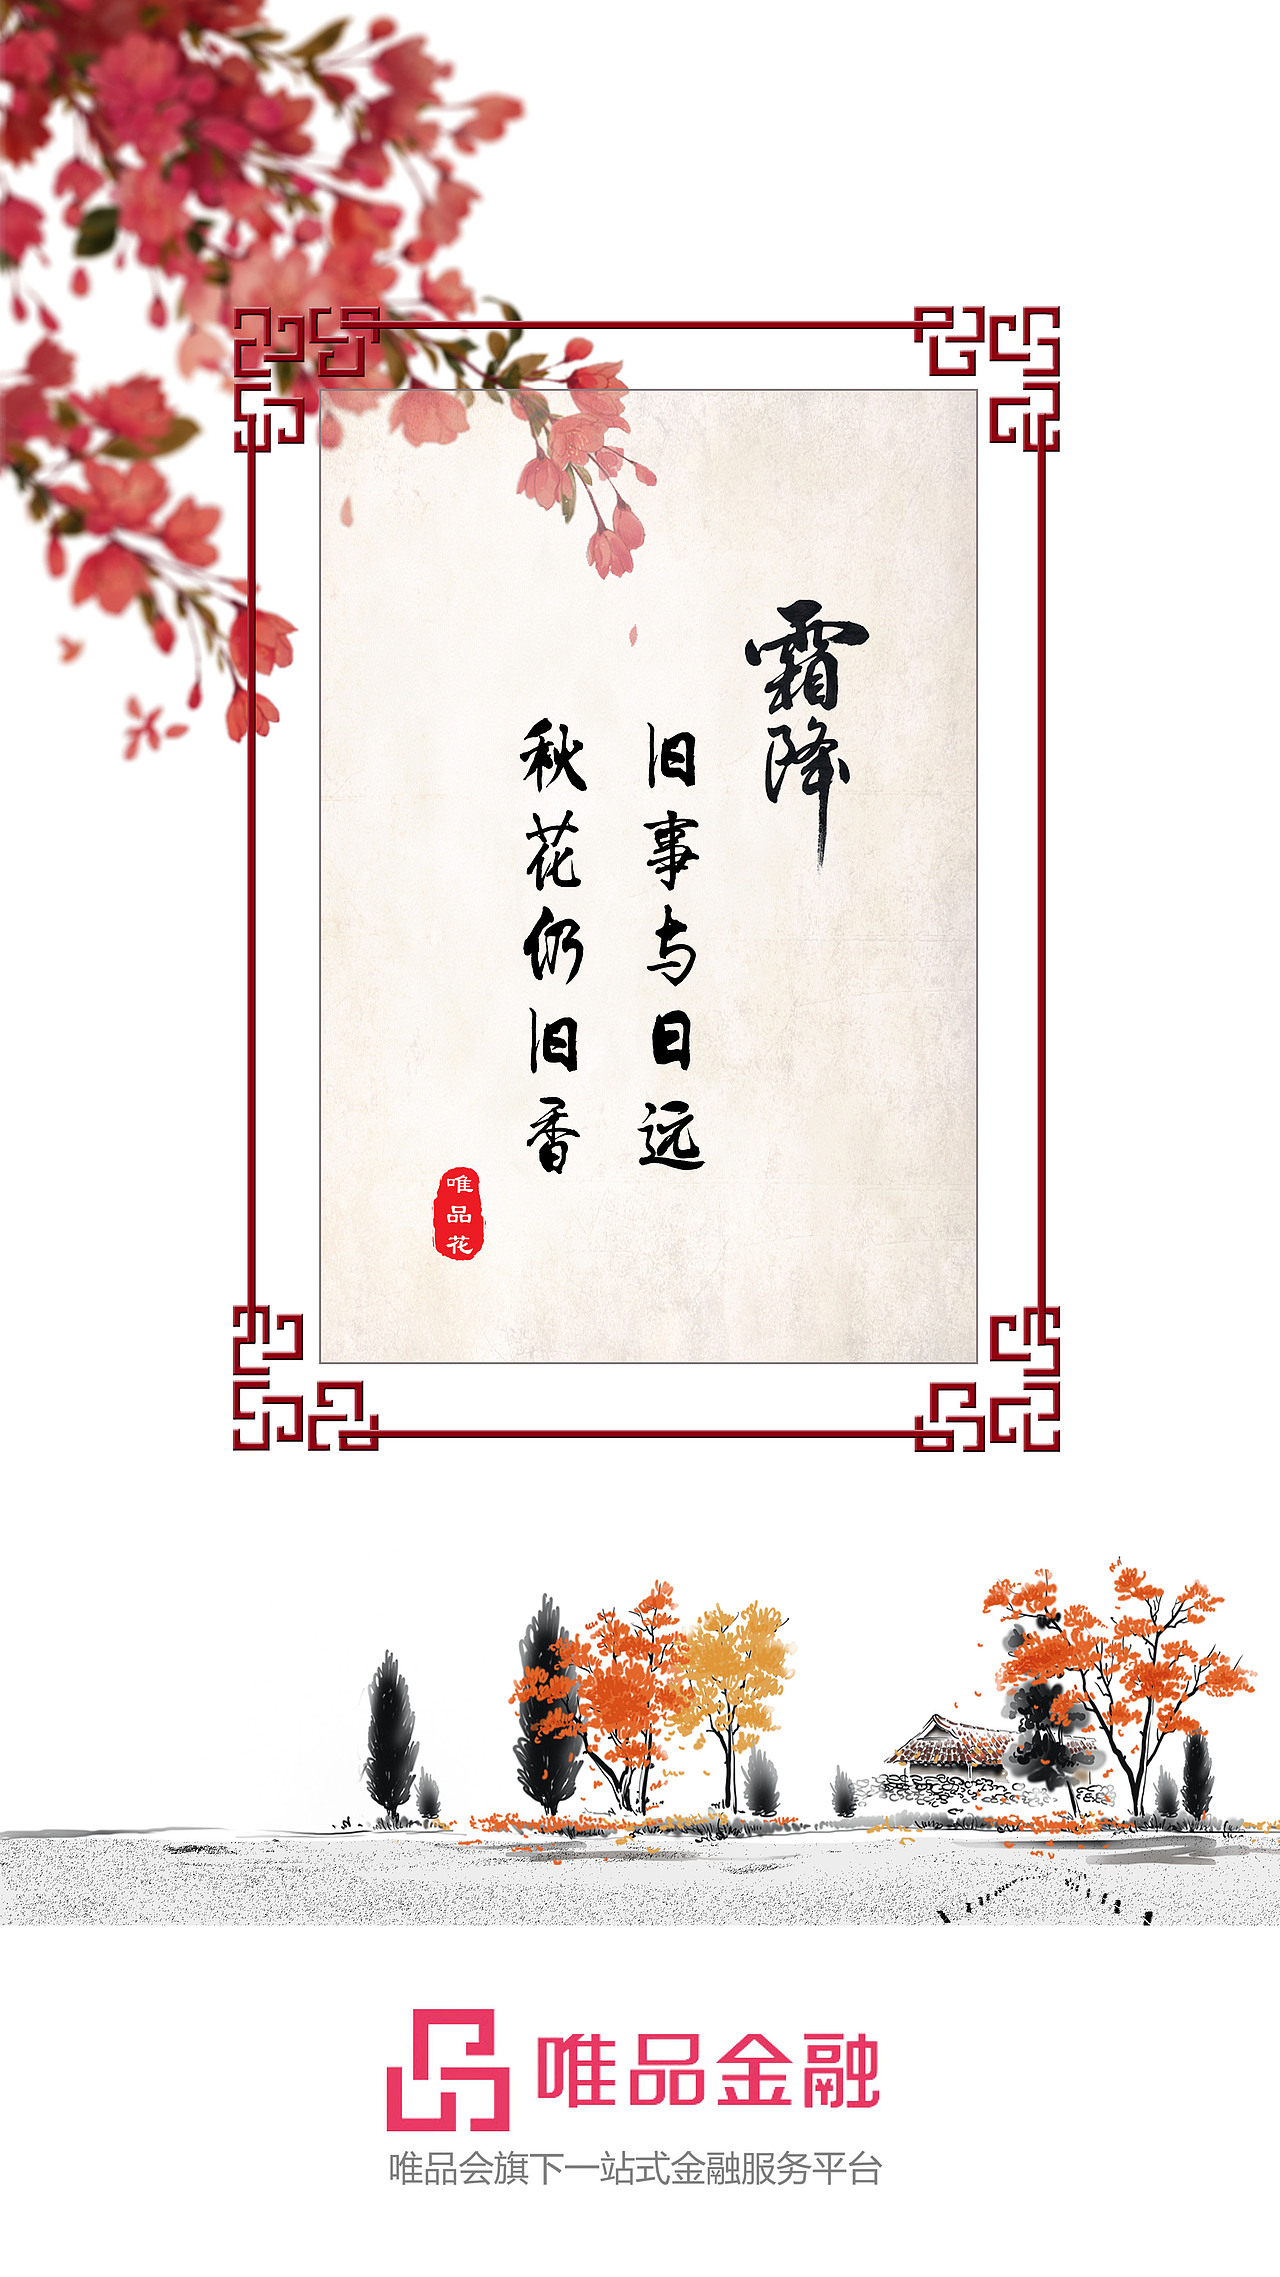 霜降
旧事与日远
秋花仍旧香
唯品花
唯品金融
唯品会旗下一站式金融服务平台